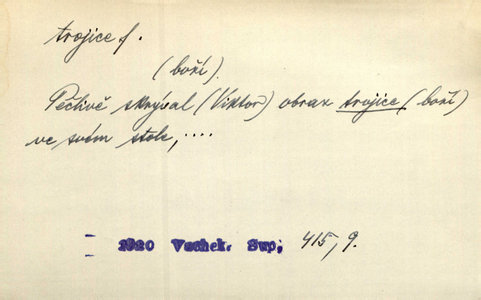 trojice f.
(boří).
Pečlivě skrýval (Viktor) obraz trojice (boří)
ve svém stole, ....
– 1920 Vachek. Sup; 415, 9.